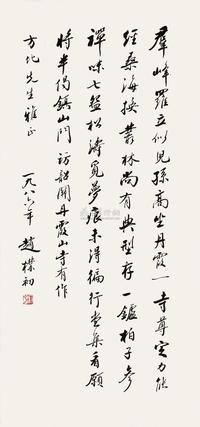 羣峰羅立似兒孫高坐丹霞一寺尊定力能
經桑海換叢林尚有典型存一鑪柏子參
禪味七盌松濤覓夢痕未得徧行堂集看願
將半偈鎮山門 訪韶關丹霞山寺有作
方 先生雅正
一九八六年 趙樸初